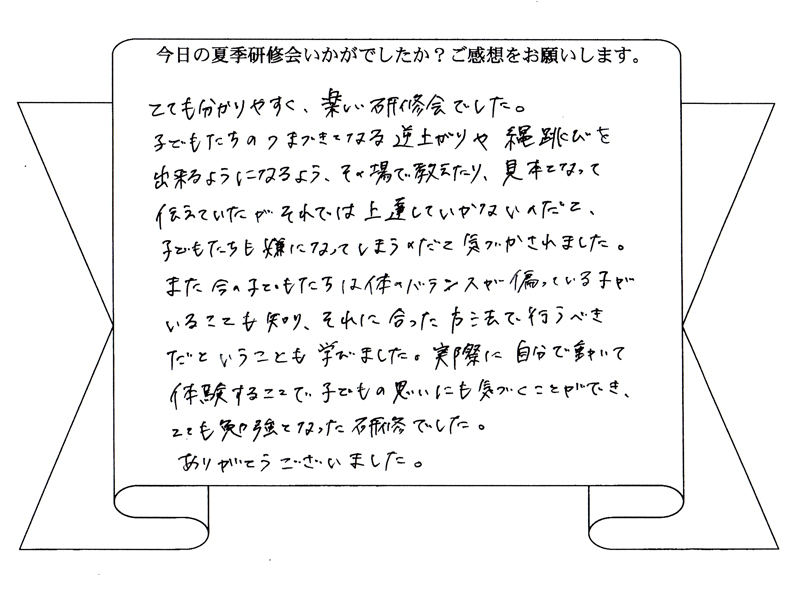 今日の夏季研修会いかがでしたか？ご感想をお願いします。
とても分かりやすく、楽しい研修会でした。
子どもたちのつまづきとなる逆上がりや縄跳びを
出来るようになるよう、その場で教えたり、見本となって
伝えていたがそれでは上達していかないのだと、
子どもたちも嫌になってしまうのだと気づかされました。
また今の子どもたちは体のバランスが偏っている子が
いることも知り、それに合った方法で行うべき
だということも学びました。実際に自分で動いて
体験することで子どもの思いにも気づくことができ、
とても勉強となった研修でした。
ありがとうございました。